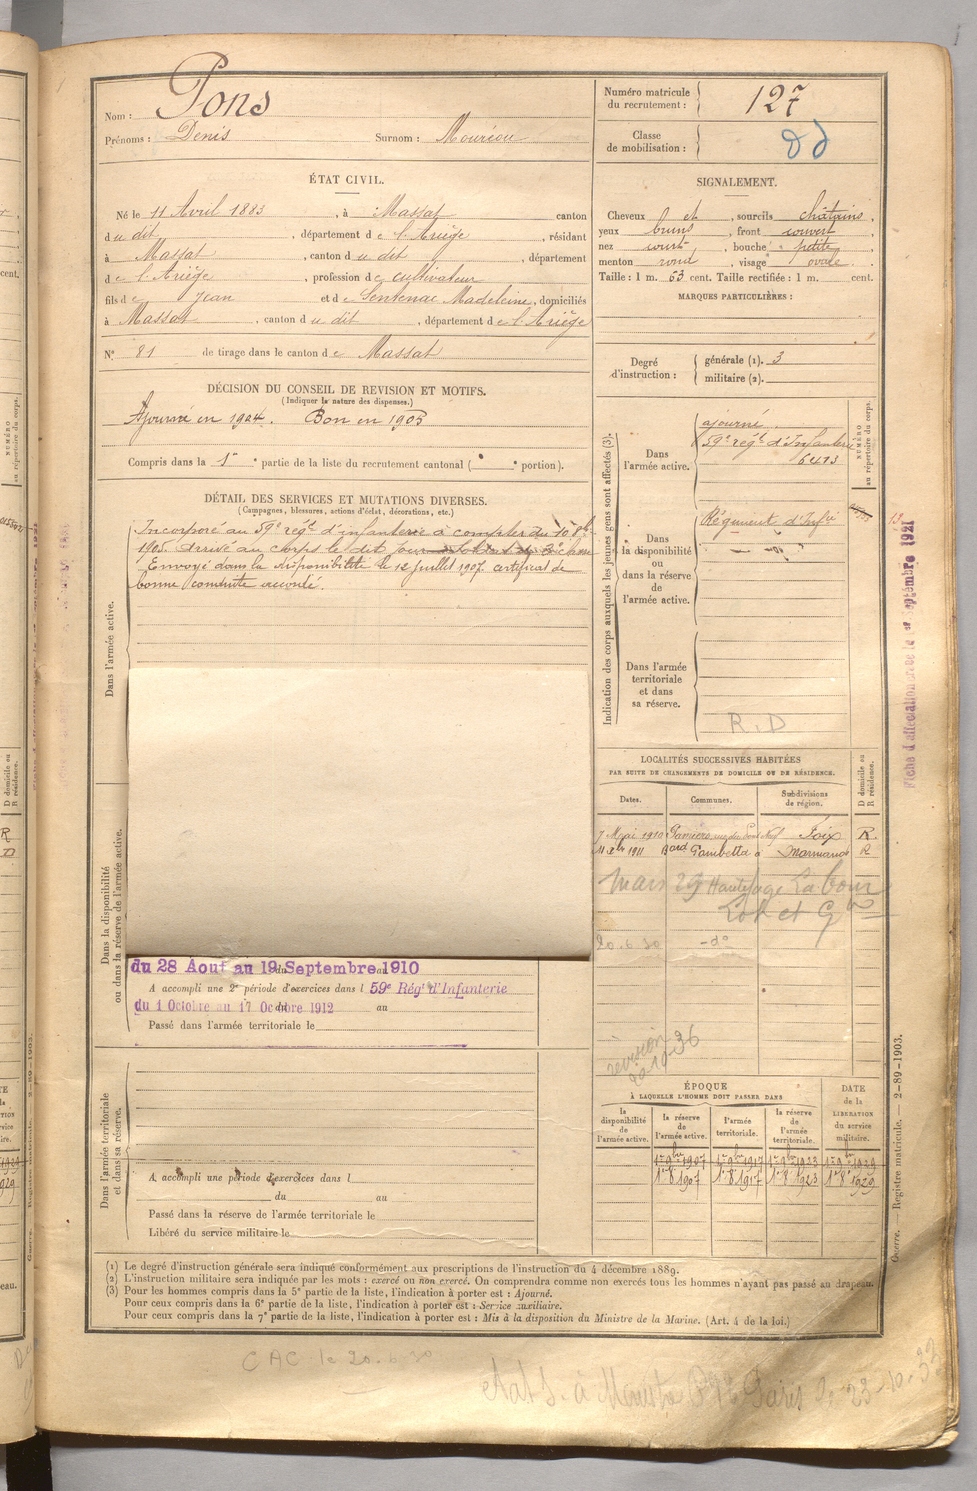 Nom : Pons
Prénoms : Denis Surnom : Mouréou
Numéro matricule du recrutement : 127
Classe de mobilisation :
ÉTAT CIVIL.
Né le 11 Avril 1883, à Massat canton
du dit, département de l'Ariège, résidant
à Massat, canton du dit, département
de l'Ariège, profession de cultivateur
fils de Jean et de Sentenac Madeleine, domiciliés
à Massat, canton du dit, département de l'Ariège
N° 81 de tirage dans le canton de Massat
SIGNALEMENT.
Cheveux et, sourcils châtains,
yeux bruns, front couvert,
nez court, bouche petite,
menton rond, visage ovale.
Taille : 1 m. 63 cent. Taille rectifiée : 1 m. cent.
MARQUES PARTICULIÈRES :
Degré d'instruction : générale (1). 3
militaire (2).
DÉCISION DU CONSEIL DE REVISION ET MOTIFS.
(Indiquer la nature des dispenses.)
Ajourné en 1904. Bon en 1905
Compris dans la 1re partie de la liste du recrutement cantonal ( portion).
DÉTAIL DES SERVICES ET MUTATIONS DIVERSES.
(Campagnes, blessures, actions d'éclat, décorations, etc.)
Dans l'armée active.
Incorporé au 59e régt d'infanterie à compter du 10 8bre
1905. Arrivé au corps le dit jour
Envoyé dans la disponibilité le 12 juillet 1907. certificat de
bonne conduite accordé.
Dans la disponibilité ou dans la réserve de l'armée active.
du 28 Aout au 19 Septembre 1910
A accompli une 2e période d'exercices dans l 59e Régt d'Infanterie
du 1 Octobre au 17 Octobre 1912
Passé dans l'armée territoriale le
Dans l'armée territoriale et dans sa réserve.
A accompli une période d'exercices dans l
du au
Passé dans la réserve de l'armée territoriale le
Libéré du service militaire le
Indication des corps auxquels les jeunes gens sont affectés (3).
NUMÉRO au répertoire du corps.
Dans l'armée active.
ajourné
59e régt d'Infanterie
6413
Dans la disponibilité ou dans la réserve de l'armée active.
Régiment d'Infie
Dans l'armée territoriale et dans sa réserve.
R.D
LOCALITÉS SUCCESSIVES HABITÉES
PAR SUITE DE CHANGEMENTS DE DOMICILE OU DE RÉSIDENCE.
D domicile ou R résidence.
Dates. Communes. Subdivisions de région.
7 Mai 1910 Pamiers Foix R
1911 Bard Gambetta Marmande R
Mars 29 Hautefage La Tour
Lot et Gne
20.6.30 -do-
révision
20-10-36
ÉPOQUE
À LAQUELLE L'HOMME DOIT PASSER DANS
la disponibilité de l'armée active.
la réserve de l'armée active.
l'armée territoriale.
la réserve de l'armée territoriale.
DATE de la LIBERATION du service militaire.
1er 8 1907 1er 8 1917 1er 8 1923 1er 8 1929
(1) Le degré d'instruction générale sera indiqué conformément aux prescriptions de l'instruction du 4 décembre 1889.
(2) L'instruction militaire sera indiquée par les mots : exercé ou non exercé. On comprendra comme non exercés tous les hommes n'ayant pas passé au drapeau.
(3) Pour les hommes compris dans la 5e partie de la liste, l'indication à porter est : Ajourné.
Pour ceux compris dans la 6e partie de la liste, l'indication à porter est : Service auxiliaire.
Pour ceux compris dans la 7e partie de la liste, l'indication à porter est : Mis à la disposition du Ministre de la Marine. (Art. 4 de la loi.)
Guerre. — Registre matricule. — 2-89-1903.
Fiche d'affectation le 1er Septembre 1921
CAC le 20.6.30
Paris le 23-10-32